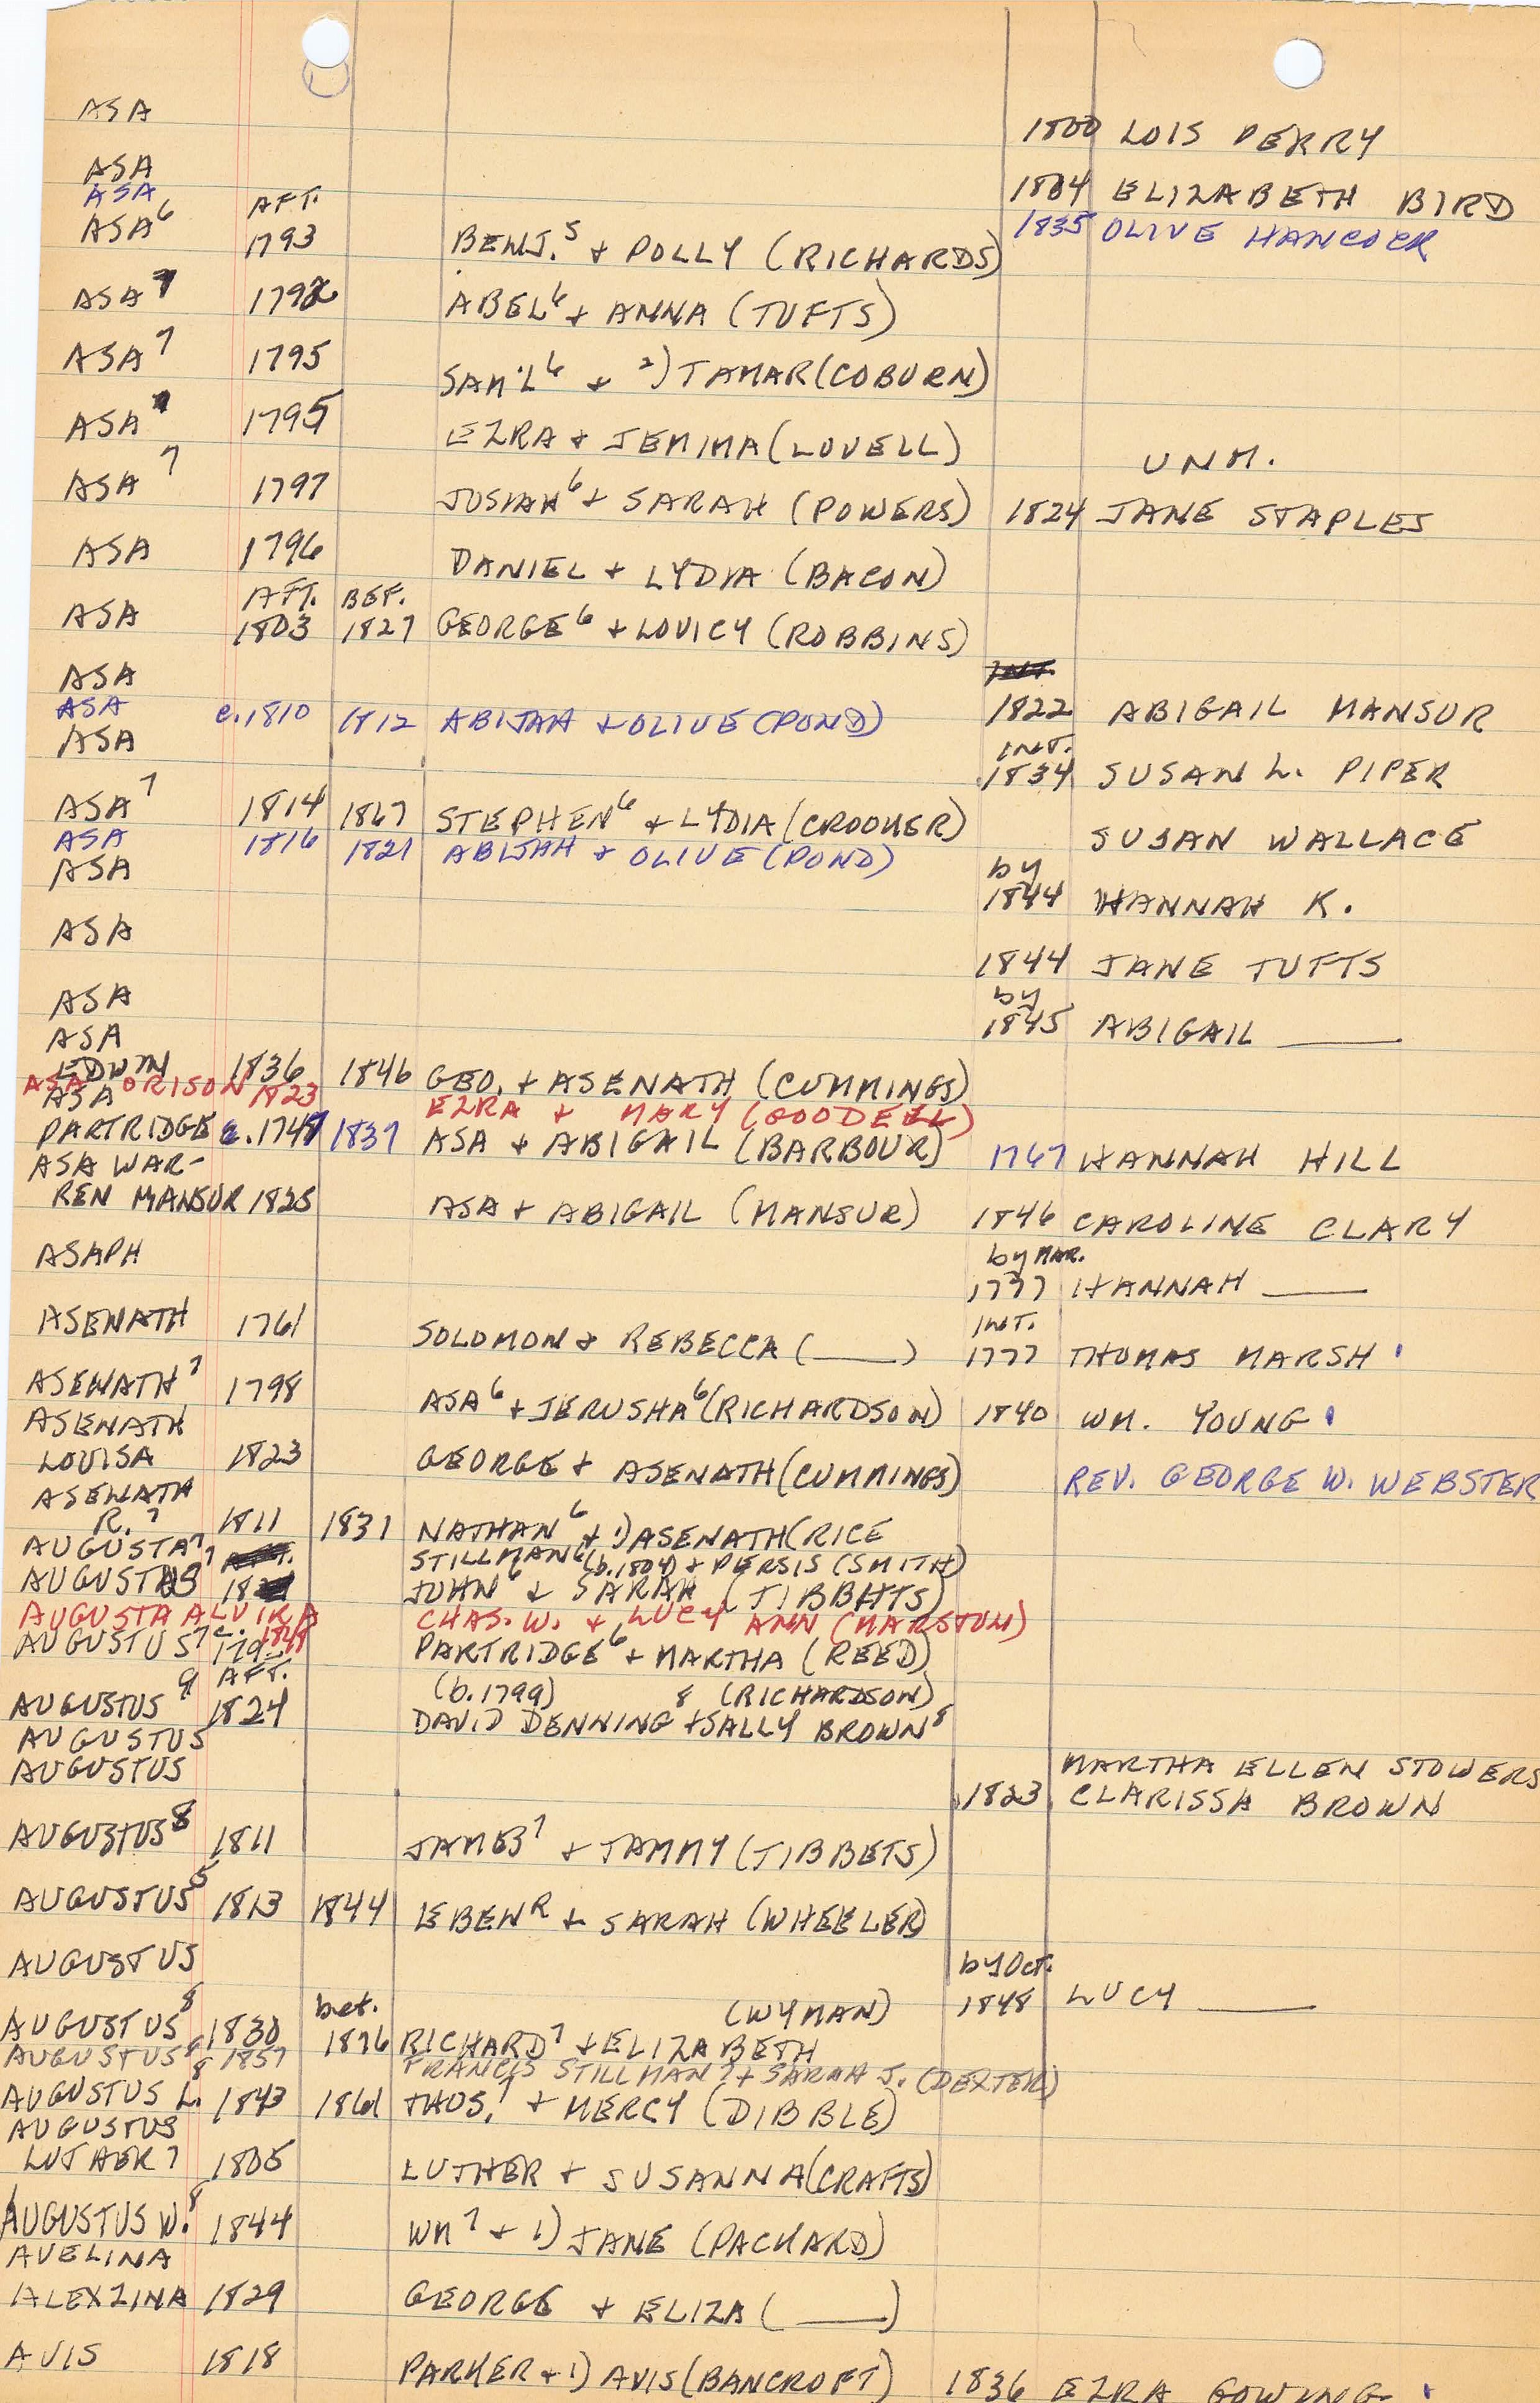 ASA 1800 LOIS PERRY
ASA 1804 ELIZABETH BIRD
ASA 1835 OLIVE HANCOCK
AFT.
ASA6 1793 BENJ.5 + POLLY (RICHARDS)
ASA7 1792 ABEL6 + ANNA (TUFTS)
ASA7 1795 SAM'L6 + 2) TAMAR (COBURN)
ASA 1795 EZRA + JEMIMA (LOVELL) UNM.
ASA7 1797 JOSIAH6 + SARAH (POWERS) 1824 JANE STAPLES
ASA 1796 DANIEL + LYDIA (BACON)
AFT. BEF.
ASA 1803 1827 GEORGE6 + LOVICY (ROBBINS)
INT.
ASA 1822 ABIGAIL MANSUR
ASA c.1810 1812 ABIJAH + OLIVE (POND)
INT.
ASA 1834 SUSAN L. PIPER
ASA7 1814 1867 STEPHEN6 + LYDIA (CROOKER) SUSAN WALLACE
ASA 1816 1821 ABIJAH + OLIVE (POND)
by
ASA 1844 HANNAH K.
ASA 1844 JANE TUFTS
by
ASA 1845 ABIGAIL ____
ASA
EDWIN 1836 1846 GEO. + ASENATH (CUMMINGS)
ASA ORISON 1823 EZRA + MARY (GOODELL)
ASA
PARTRIDGE c.1747 1837 ASA + ABIGAIL (BARBOUR) 1767 HANNAH HILL
ASA WAR-
REN MANSUR 1825 ASA + ABIGAIL (MANSUR) 1846 CAROLINE CLARY
by MAR.
ASAPH 1777 HANNAH ____
INT.
ASENATH 1761 SOLOMON + REBECCA (____) 1777 THOMAS MARSH
ASENATH7 1798 ASA6 + JERUSHA6 (RICHARDSON) 1840 WM. YOUNG
ASENATH
LOUISA 1823 GEORGE + ASENATH (CUMMINGS) REV. GEORGE W. WEBSTER
ASENATH
R.7 1811 1831 NATHAN6 + 1) ASENATH (RICE
AUGUSTA7 STILLMAN6 (b.1804) + PERSIS (SMITH)
AUGUSTUS7 JOHN6 + SARAH (TIBBETTS)
AUGUSTA ALVIRA 1848 CHAS. W. + LUCY ANN (MARSTON)
AUGUSTUS7 c. PARTRIDGE6 + MARTHA (REED)
AFT. (b.1799) 8 (RICHARDSON)
AUGUSTUS9 1824 DAVID DENNING + SALLY BROWN8
AUGUSTUS MARTHA ELLEN STOWERS
AUGUSTUS 1823 CLARISSA BROWN
AUGUSTUS8 1811 JAMES7 + TAMMY (TIBBETS)
AUGUSTUS5 1813 1844 EBENR + SARAH (WHEELER)
by Oct.
AUGUSTUS 1848 LUCY ____
bet. (WYMAN)
AUGUSTUS8 1830 1876 RICHARD7 + ELIZABETH
AUGUSTUS8 1857 FRANCIS STILLMAN7 + SARAH J. (DEXTER)
AUGUSTUS L.8 1843 1861 THOS.7 + MERCY (DIBBLE)
AUGUSTUS
LUTHER7 1805 LUTHER + SUSANNA (CRAFTS)
AUGUSTUS W.8 1844 WM7 + 1) JANE (PACKARD)
AVELINA
ALEXZINA 1829 GEORGE + ELIZA (____)
AVIS 1818 PARKER + 1) AVIS (BANCROFT) 1836 EZRA GOWING